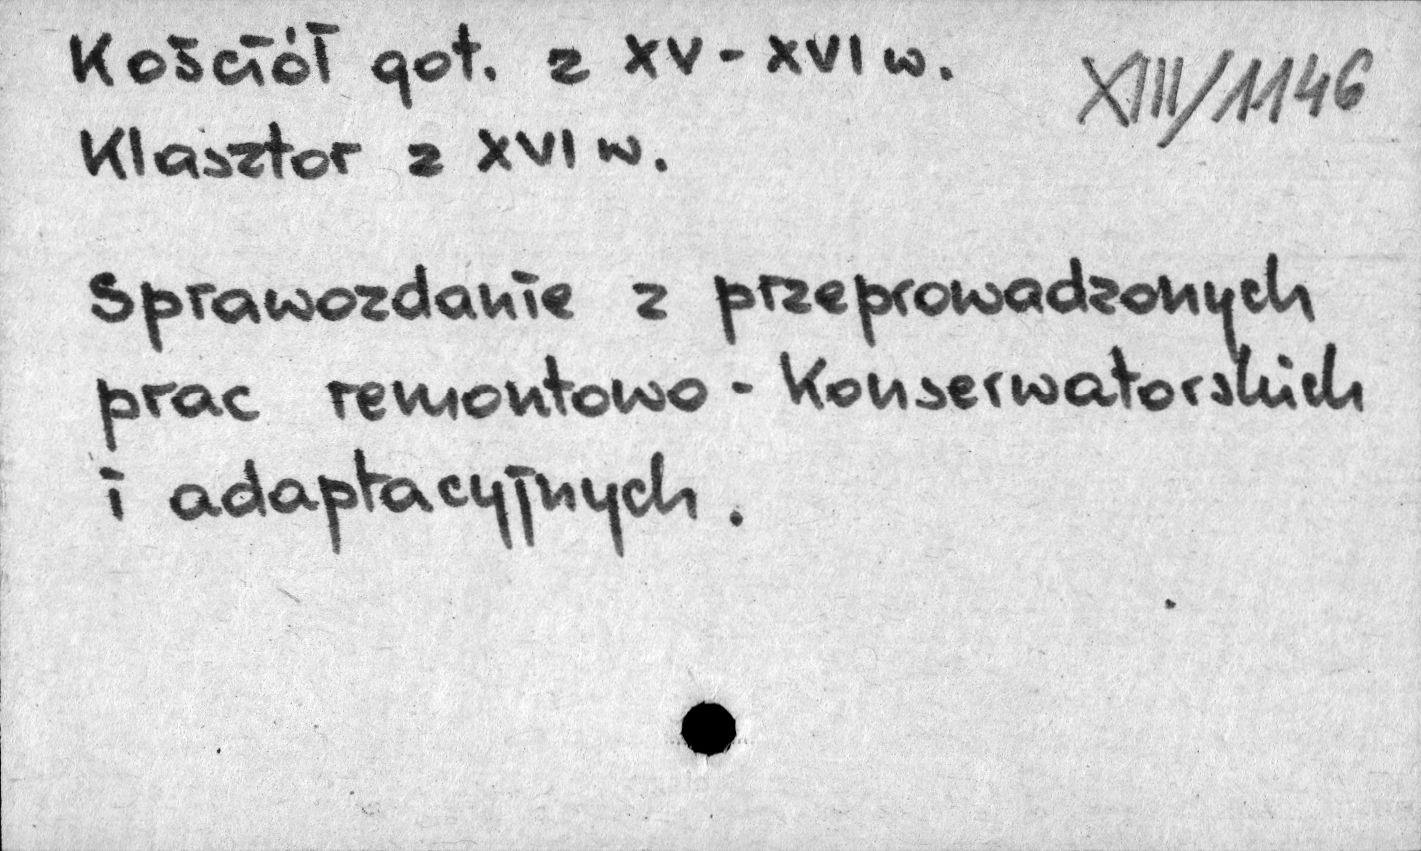 Kościół got. z XV - XVI w.
XIII/1146
Klasztor z XVI w.
Sprawozdanie z przeprowadzonych
prac remontowo - konserwatorskich
i adaptacyjnych.